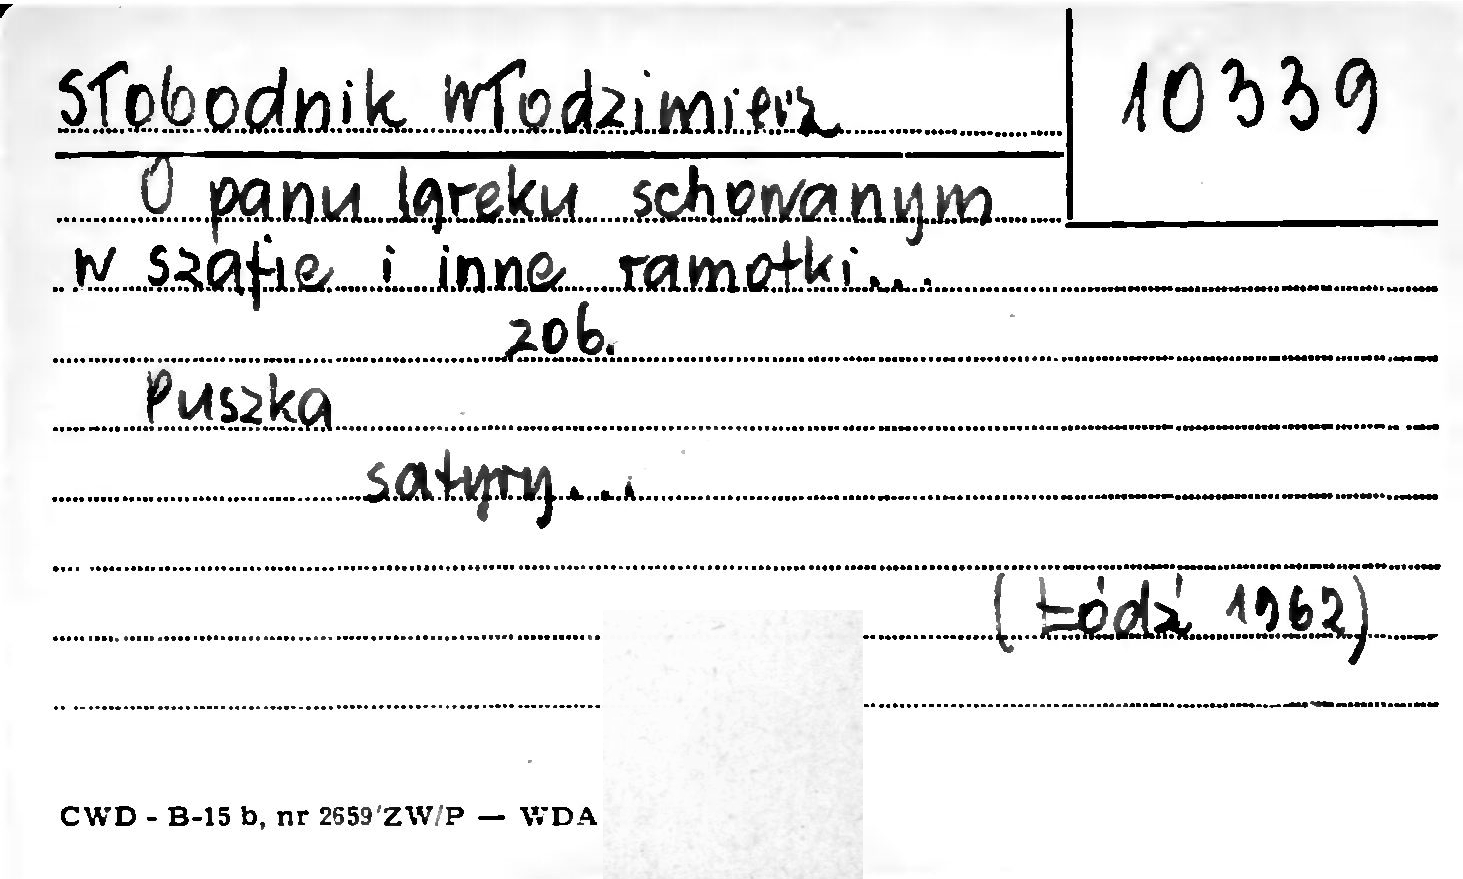 Słobodnik Włodzimierz
10339
O panu Igreku schowanym
w szafie i inne ramotki...
zob.
Puszka
satyry...
(Łódź 1962)
CWD - B-15 b, nr 2659/ZW/P — WDA